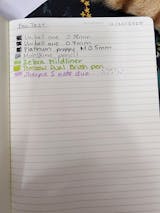 Pen Test
Uniball one 0.38mm
Uniball one 0.5mm
Platinum preppy M 0.5mm
Monoline pencil
Zebra Mildliner
Tombow Dual Brush pen